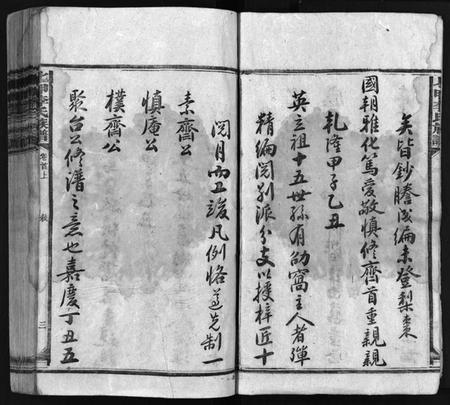 矣皆鈔謄成編未登梨棗
國朝雅化篤愛敬慎修齊首重親親
乾隆甲子乙丑
英立祖十五世孫有劬窩主人者殫
精編閱別派分支以授梓匠十
閱月而工竣凡例恪遵先制一
素齋公
慎庵公
樸齊公
聚台公修譜之意也嘉慶丁丑五
李氏族譜
卷首上
三